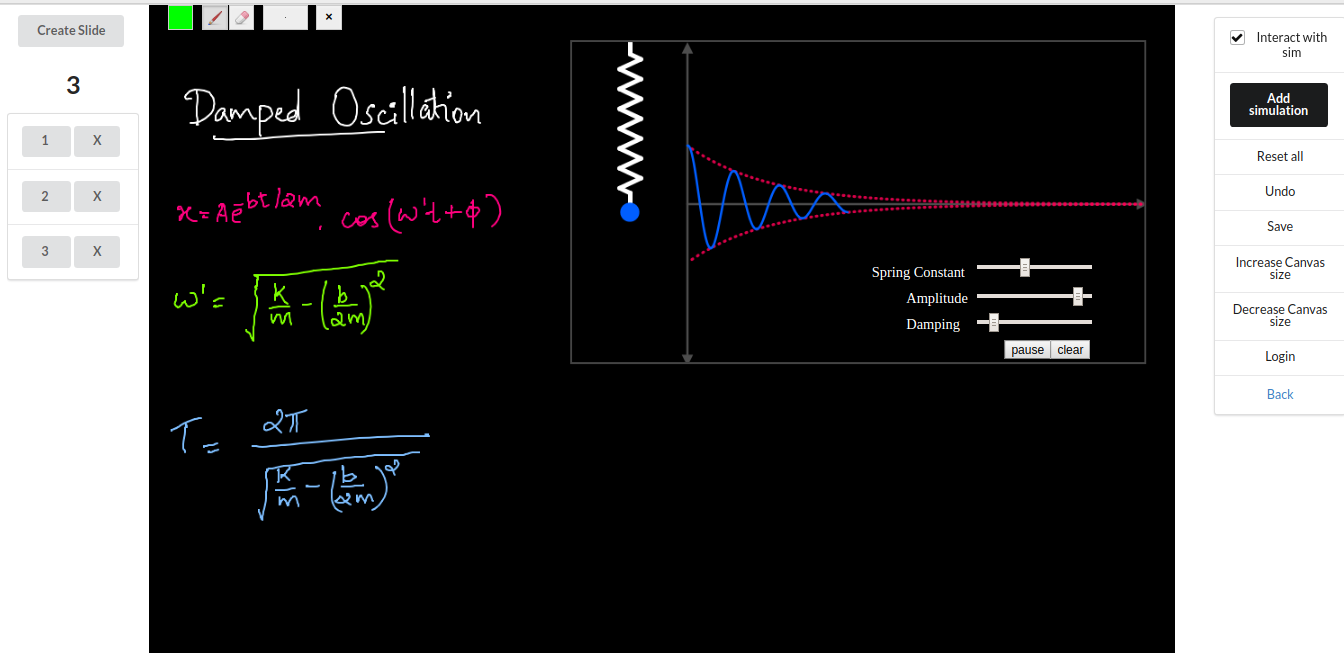 Create Slide
3
1 X
2 X
3 X
x
Damped Oscillation
x = Ae^-bt/2m . cos(ω't+φ)
ω' = √(K/m - (b/2m)^2)
T = 2π / √(K/m - (b/2m)^2)
Spring Constant
Amplitude
Damping
pause clear
Interact with
sim
Add
simulation
Reset all
Undo
Save
Increase Canvas
size
Decrease Canvas
size
Login
Back